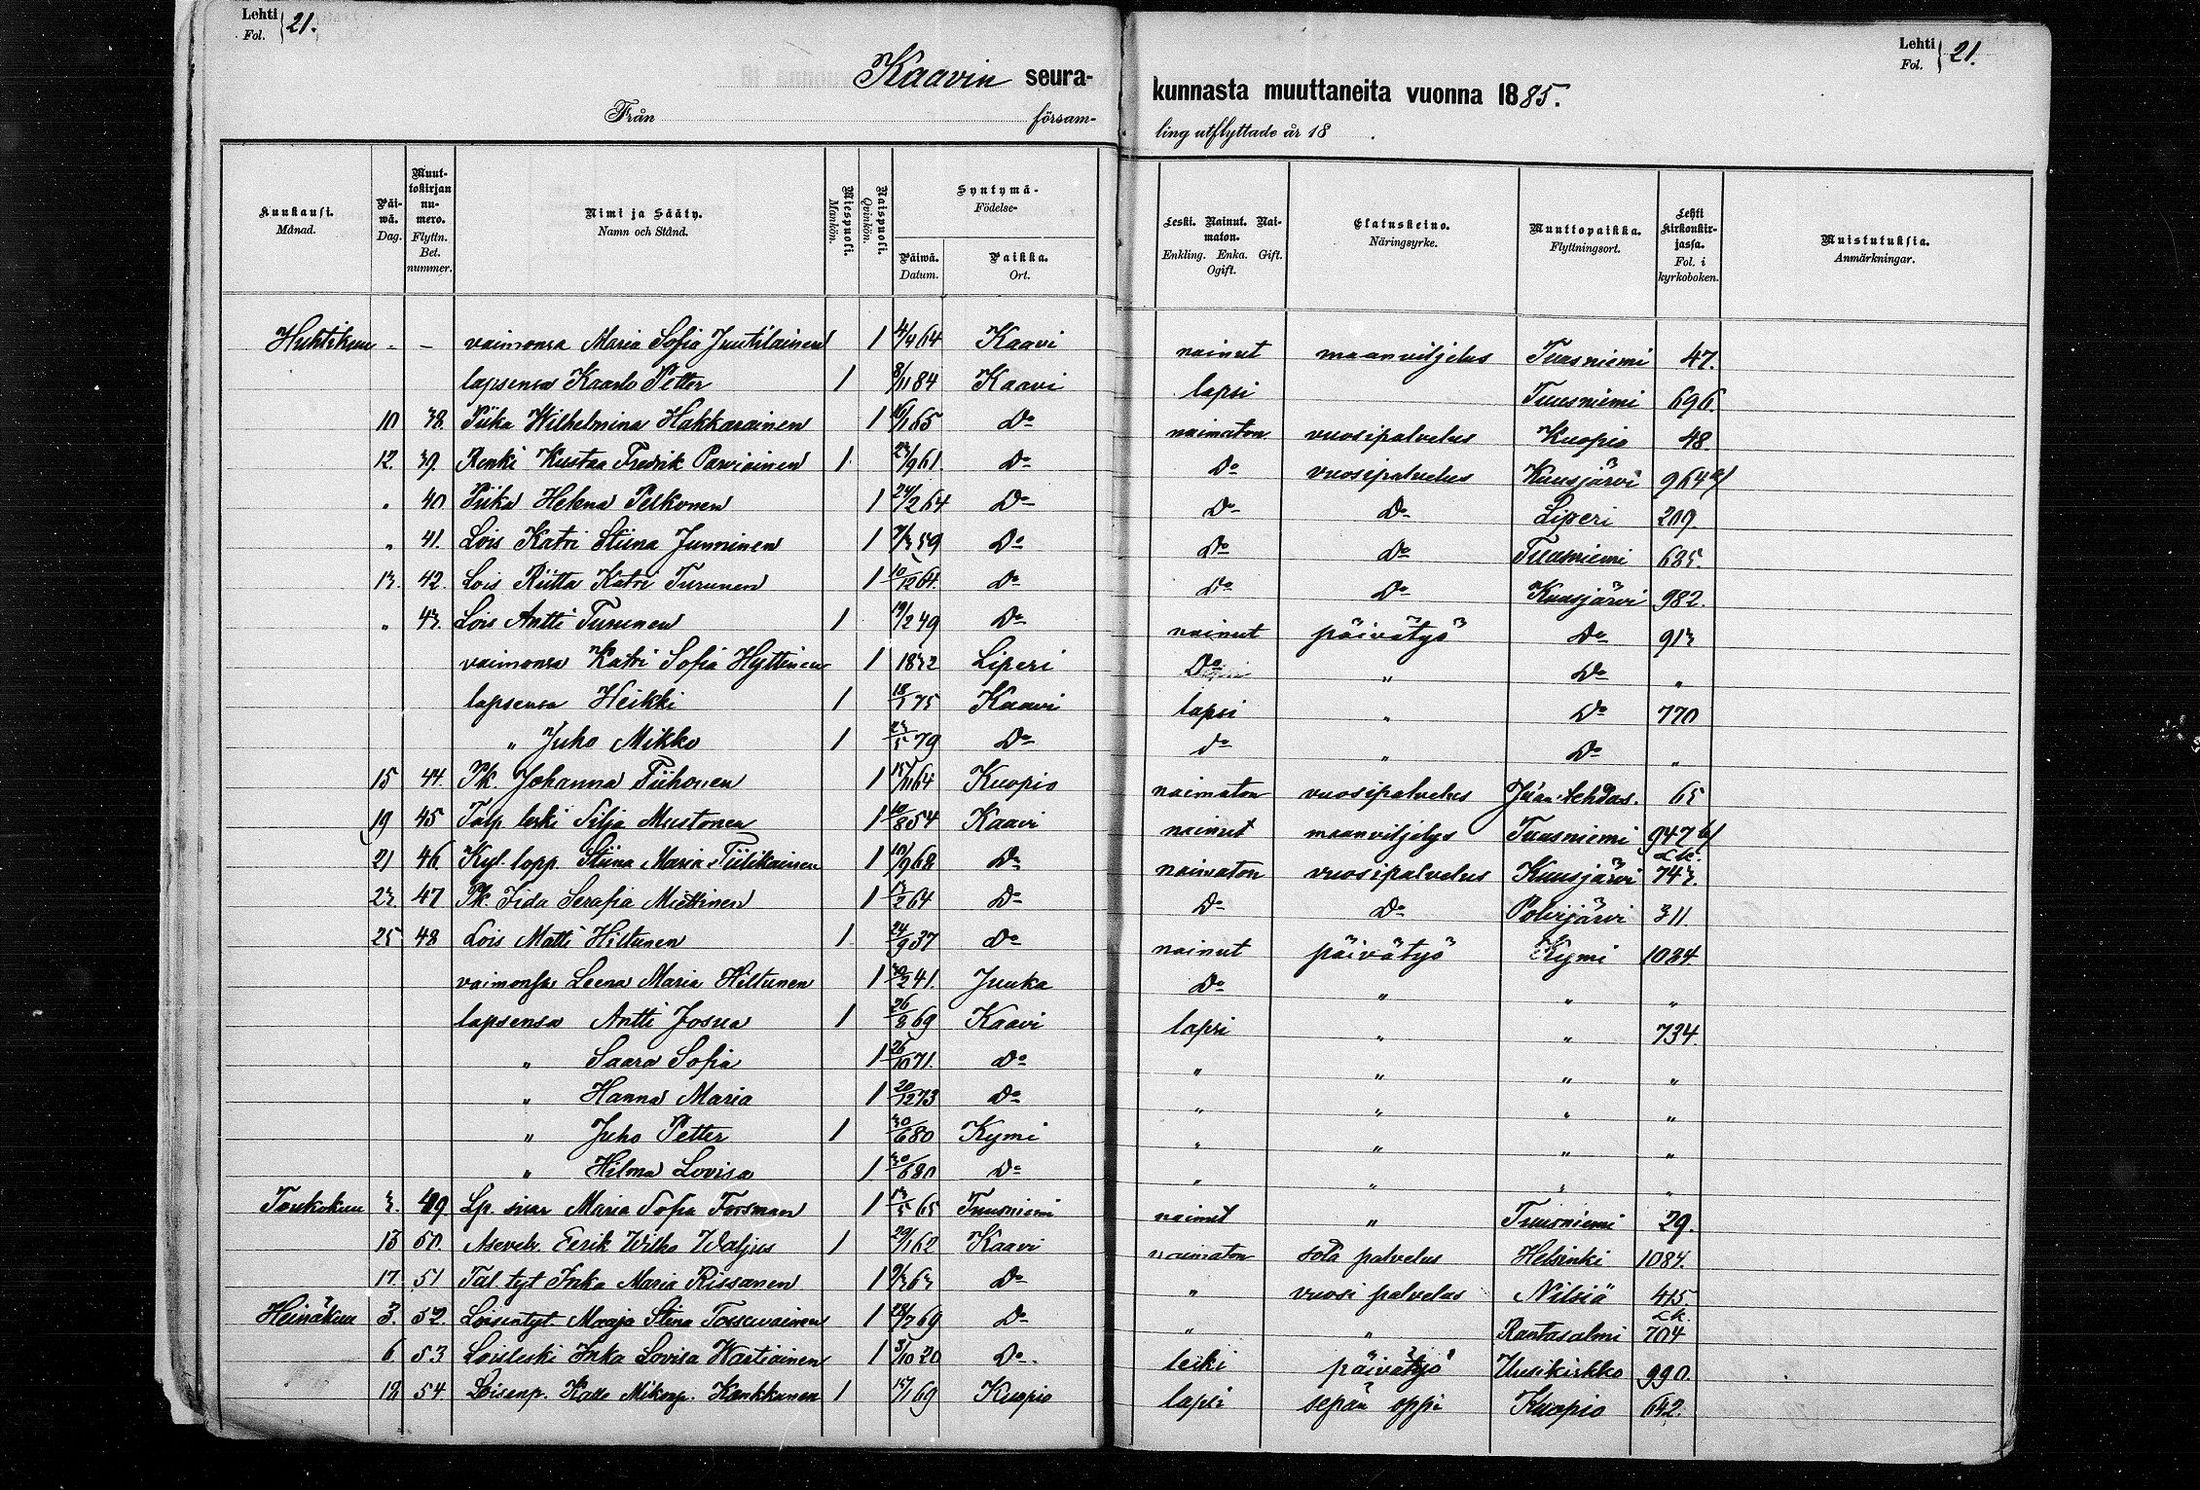 Lehti Fol. } 21.
Lehti Fol. } 21.
Kaavin seurakunnasta muuttaneita vuonna 1885.
Från församling utflyttade år 18 .
Kuukausi. Månad. | Päiwä. Dag. | Muuttokirjan numero. Flyttn. Bet. nummer. | Nimi ja Sääty. Namn och Stånd. | Miespuoli. Mankön. | Naispuoli. Qvinkön. | Syntymä- Födelse- Päiwä. Datum. | Paikka. Ort. | Leski. Nainut. Naimaton. Enkling. Enka. Gift. Ogift. | Elatuskeino. Näringsyrke. | Muuttopaikka. Flyttningsort. | Lehti kirkonkirjassa. Fol. i kyrkoboken. | Muistutuksia. Anmärkningar.
Huhtikuu - - vaimonsa Maria Sofia Juutilainen 1 4/4 64 Kaavi nainut maanviljelus Tuusniemi 47.
lapsensa Kaarlo Petter 1 8/11 84 Kaavi lapsi Tuusniemi 696.
10 38. Piika Wilhelmina Hakkarainen 1 16/1 65 Do naimaton vuosipalvelus Kuopio 48
12. 39. Renki Kustaa Fredrik Parviainen 1 23/9 61. Do Do vuosipalvelus Kuusjärvi 964 a/
" 40 Piika Helena Pelkonen 1 24/2 64 Do Do Do Liperi 209.
" 41. Lois Katri Stiina Junninen 1 7/3 59 Do Do Do Tuusniemi 685.
13. 42. Lois Riitta Katri Turunen 1 10/12 64. Do Do Do Kuusjärvi 982.
" 43. Lois Antti Turunen 1 19/2 49 Do nainut päivätyö Do 913
vaimonsa Katri Sofia Hyttinen 1 1832 Liperi Do " Do "
lapsensa Heikki 1 18/1 75 Kaavi lapsi " Do 770
" Juho Mikko 1 23/5 79 Do do " Do "
15 44. Pk. Johanna Tiihonen 1 15/11 64 Kuopio naimaton vuosipalvelus Juan tehdas. 65
19 45 Talp leski Silja Mustonen 1 10/8 54 Kaavi nainut maanviljelys Tuusniemi 947 b/
21 46. Kyl. lopp. Stiina Maria Tiilikainen 1 10/9 68 Do naimaton vuosipalvelus Kuusjärvi Lk. 743.
23. 47 Pk. Iida Serafia Miettinen 1 13/2 64 Do Do Do Polvijärvi 311.
25 48 Lois Matti Hiltunen 1 24/9 37 Do nainut päivätyö Kymi 1084
vaimonsa Leena Maria Hiltunen 1 30/2 41. Juuka Do " " "
lapsensa Antti Josua 1 26/8 69 Kaavi lapsi " " 734.
" Saara Sofia 1 26/10 71. Do " " " "
" Hanna Maria 1 20/12 73 Do " " " "
" Juho Petter 1 30/6 80 Kymi " " " "
" Hilma Lovisa 1 30/6 80 Do " " " "
Toukokuu 3. 49. Lp. sisar Maria Sofia Forsman 1 13/5 65 Tuusniemi nainut " Tuusniemi 29.
13 50. Asevelv. Eerik Wilho Waljus 1 29/1 62 Kaavi naimaton sota palvelus Helsinki 1084.
17. 51 Tal. tyt Inka Maria Rissanen 1 9/3 63 Do " vuosi palvelus Nilsiä 415.
Heinäkuu 3. 52. Loisentyt Maaja Stina Tossavainen 1 28/7 69 Do " " Rantasalmi Lk. 704
6 53 Loisleski Inka Lovisa Wartiainen 1 3/10 20 Do. leski päivätyö Uusikirkko 990.
18 54 Loisenp. Kalle Mikonp. Kankkunen 1 15/1 69 Kuopio lapsi sepän oppi Kuopio 642.